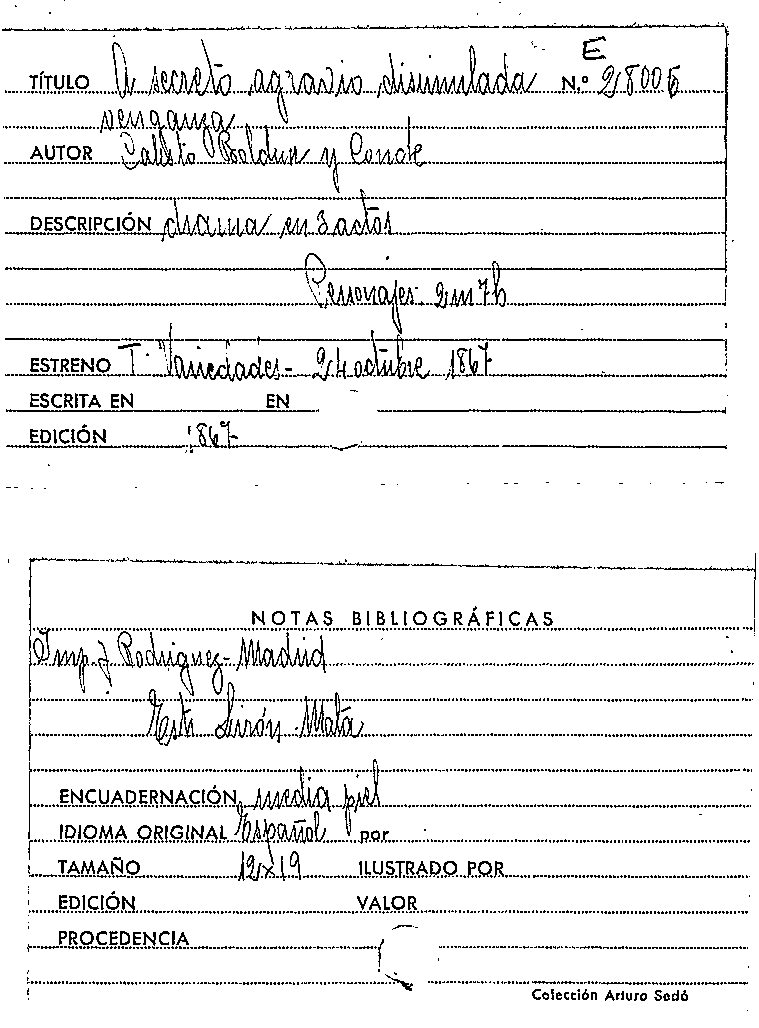 E
TÍTULO A secreto agravio disimulada N.º 28006
venganza
AUTOR Calisto Boldun y Conde
DESCRIPCIÓN drama en 3 actos
Personajes: 2m 7h
ESTRENO T. Variedades - 24 octubre 1867
ESCRITA EN EN
EDICIÓN 1867
NOTAS BIBLIOGRÁFICAS
Imp. J. Rodriguez - Madrid
Mata
ENCUADERNACIÓN media piel
IDIOMA ORIGINAL Español por
TAMAÑO 12x19 ILUSTRADO POR
EDICIÓN VALOR
PROCEDENCIA
Colección Arturo Sedó